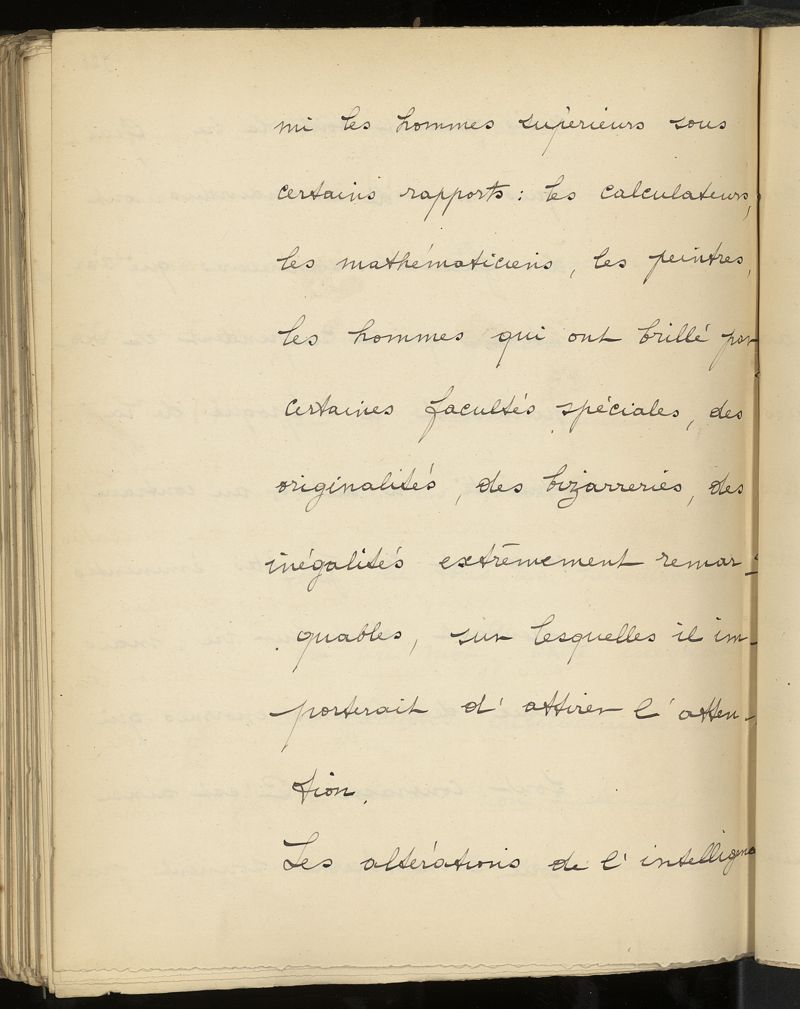 mi les hommes supérieurs sous
certains rapports : les calculateurs,
les mathématiciens, les peintres,
les hommes qui ont brillé par
certaines facultés spéciales, des
originalités, des bizarreries, des
inégalités extrêmement remar-
quables, sur lesquelles il im-
porterait d'attirer l'atten-
tion.
Les altérations de l'intelligence